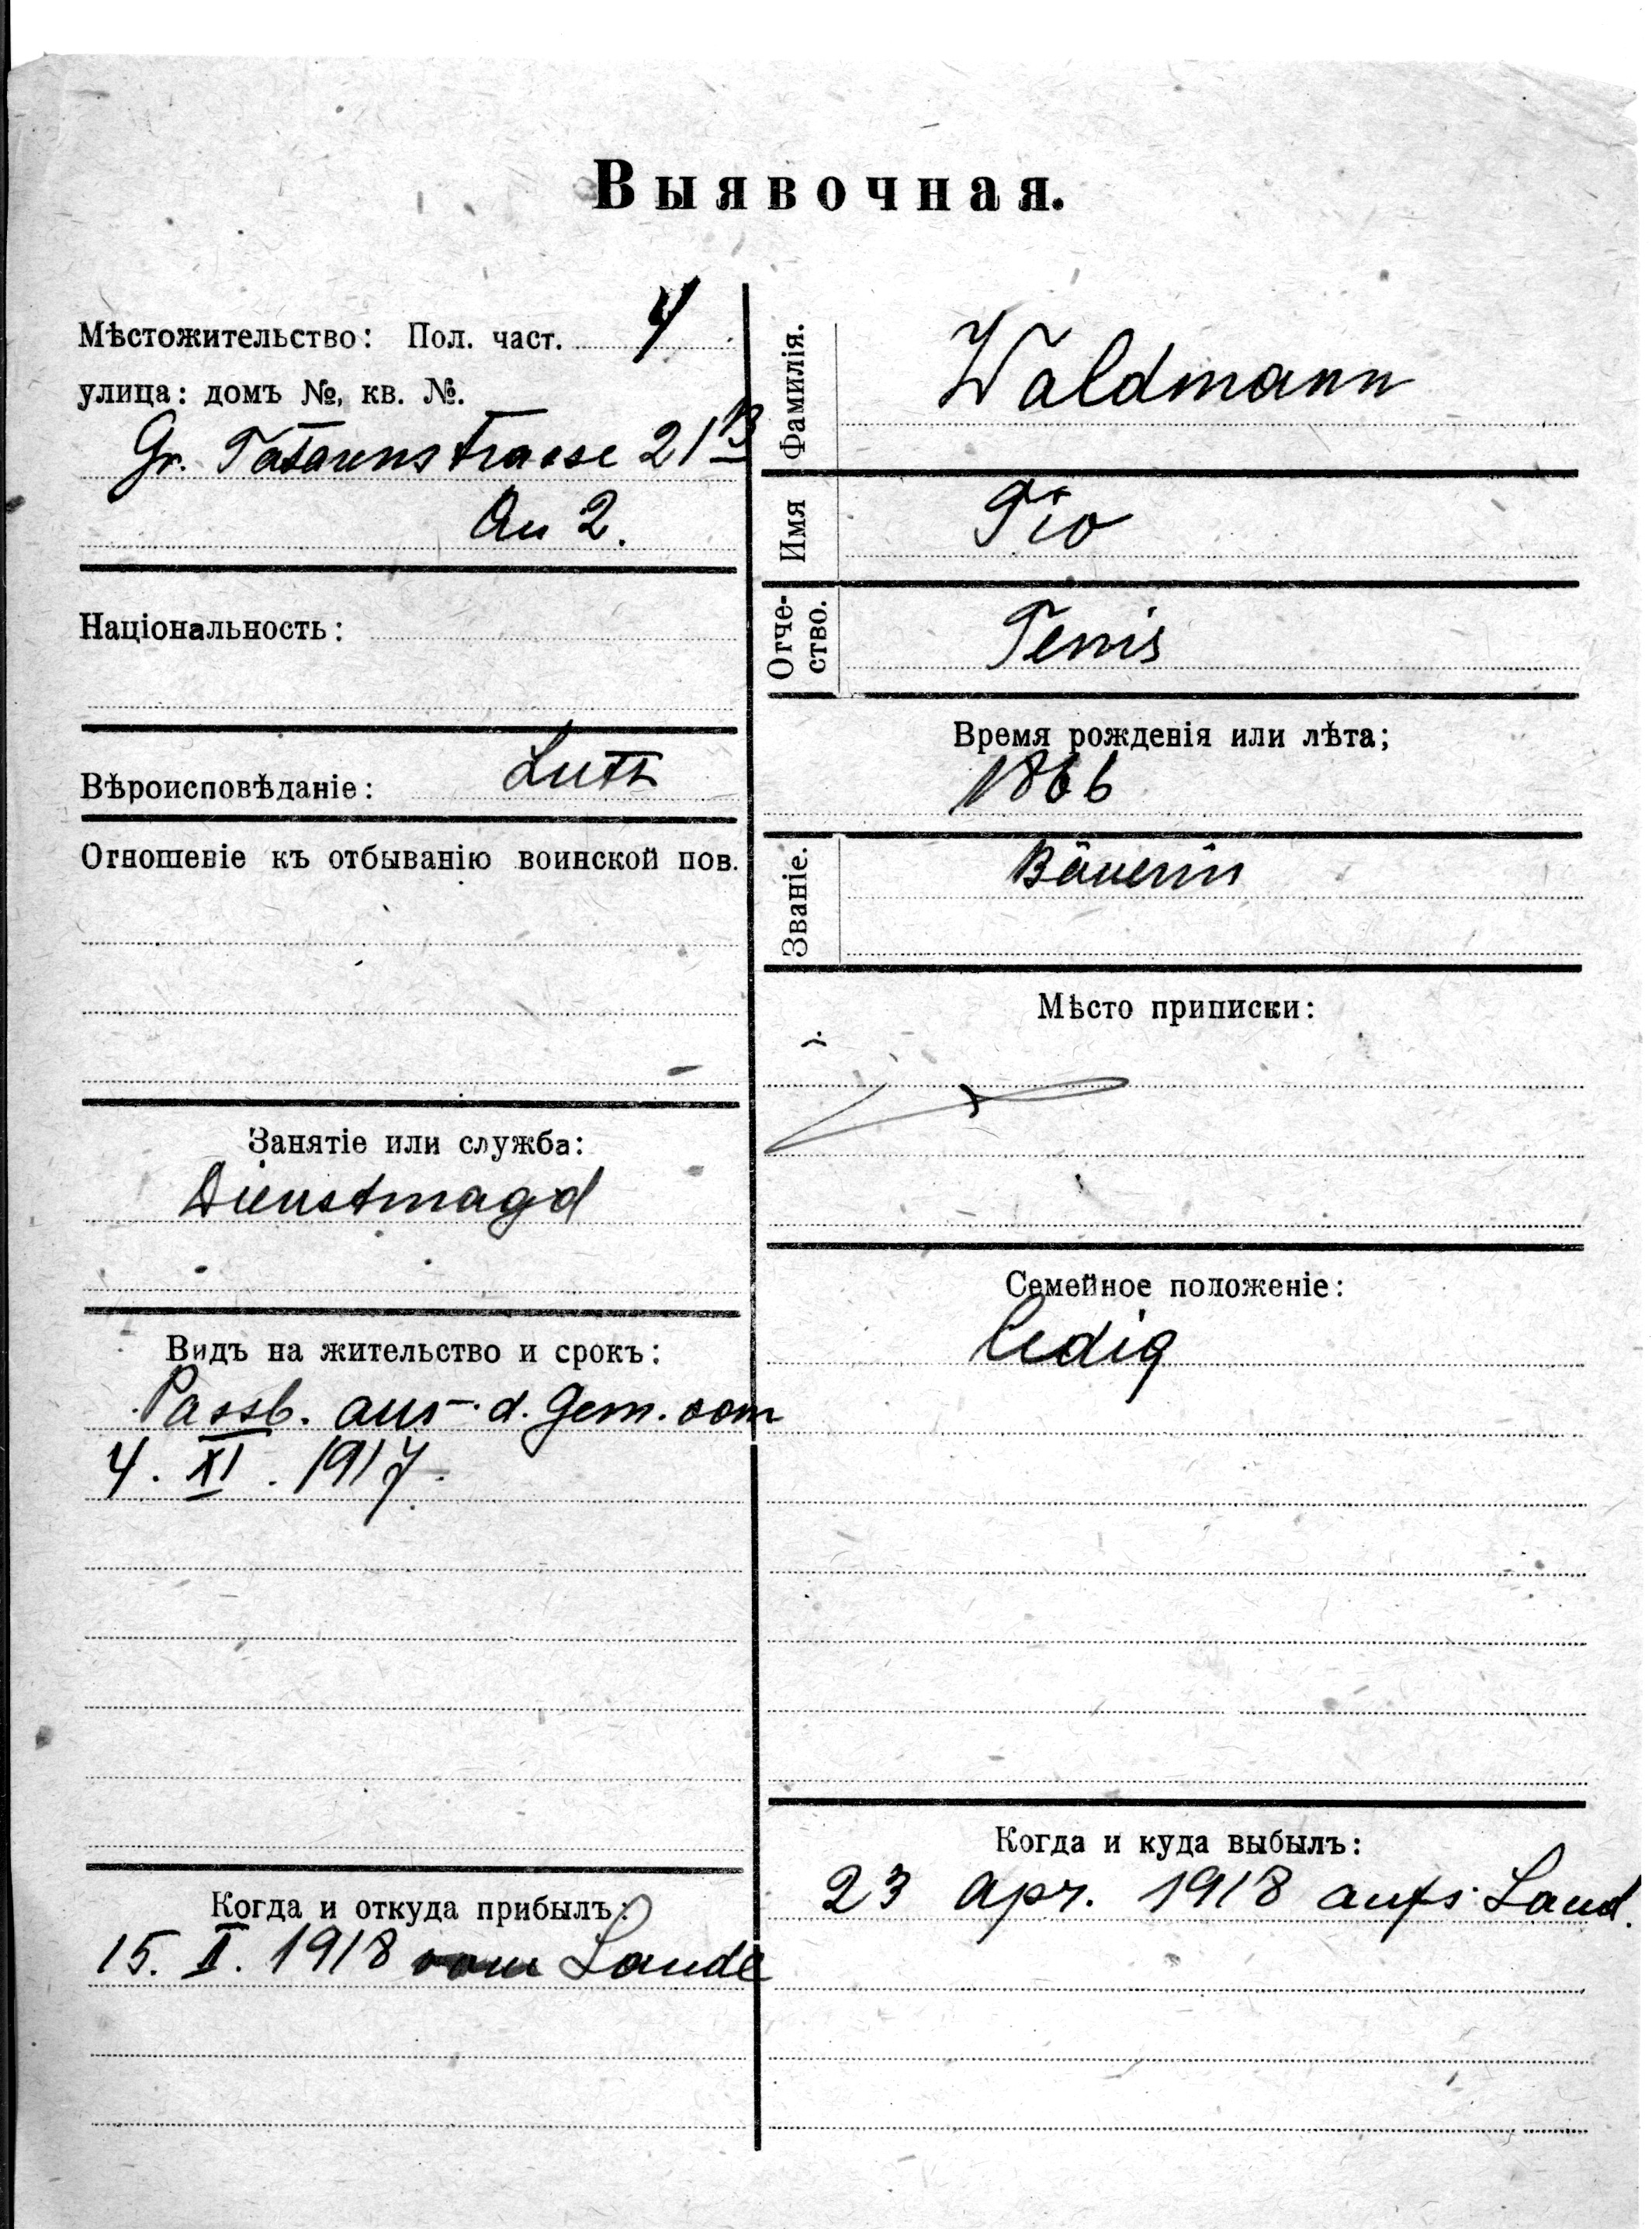 Выявочная.
Мѣстожительство: Пол. част. 4
улица: домъ №, кв. №.
Gr. Tatarenstrasse 21 B
Qu 2.
Національность:
Вѣроисповѣданіе: Luth
Отношеніе къ отбыванію воинской пов.
Занятіе или служба:
Dienstmagd
Видъ на жительство и срокъ:
Passb. aus d. Gem. vom
4. XI. 1917.
Когда и откуда прибылъ:
15. II. 1918 vom Lande
Фамилія. Waldmann
Имя Tio
Отче-
ство. Tenis
Время рожденія или лѣта;
1866
Званіе. Bäuerin
Мѣсто приписки:
Семейное положеніе:
ledig
Когда и куда выбылъ:
23 Apr. 1918 aufs Land.